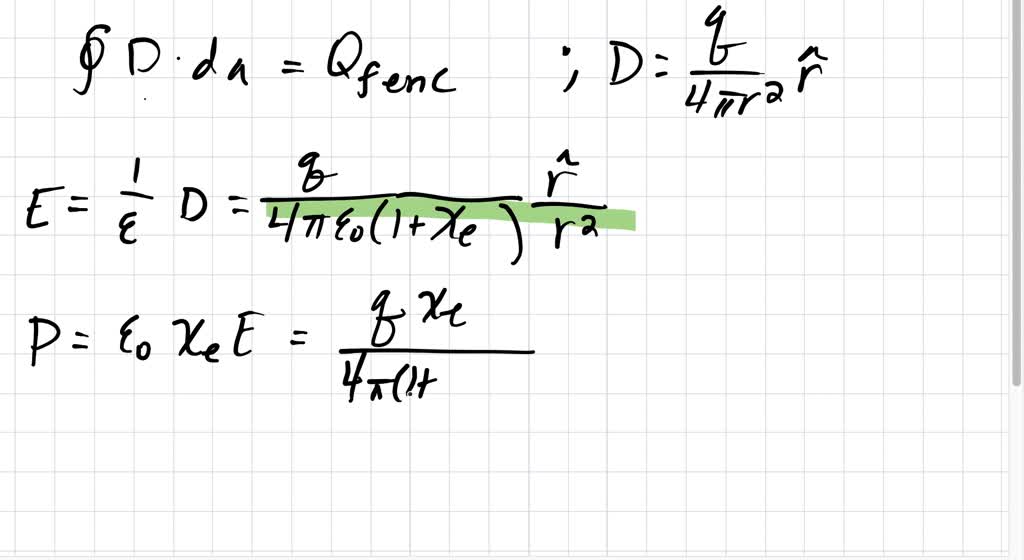 ∮ D · da = Q_fenc ; D = q/(4πr²) r̂
E = 1/ε D = q/(4πε₀(1+χₑ)) r̂/r²
P = ε₀ χₑ E = qχₑ/(4π(1+